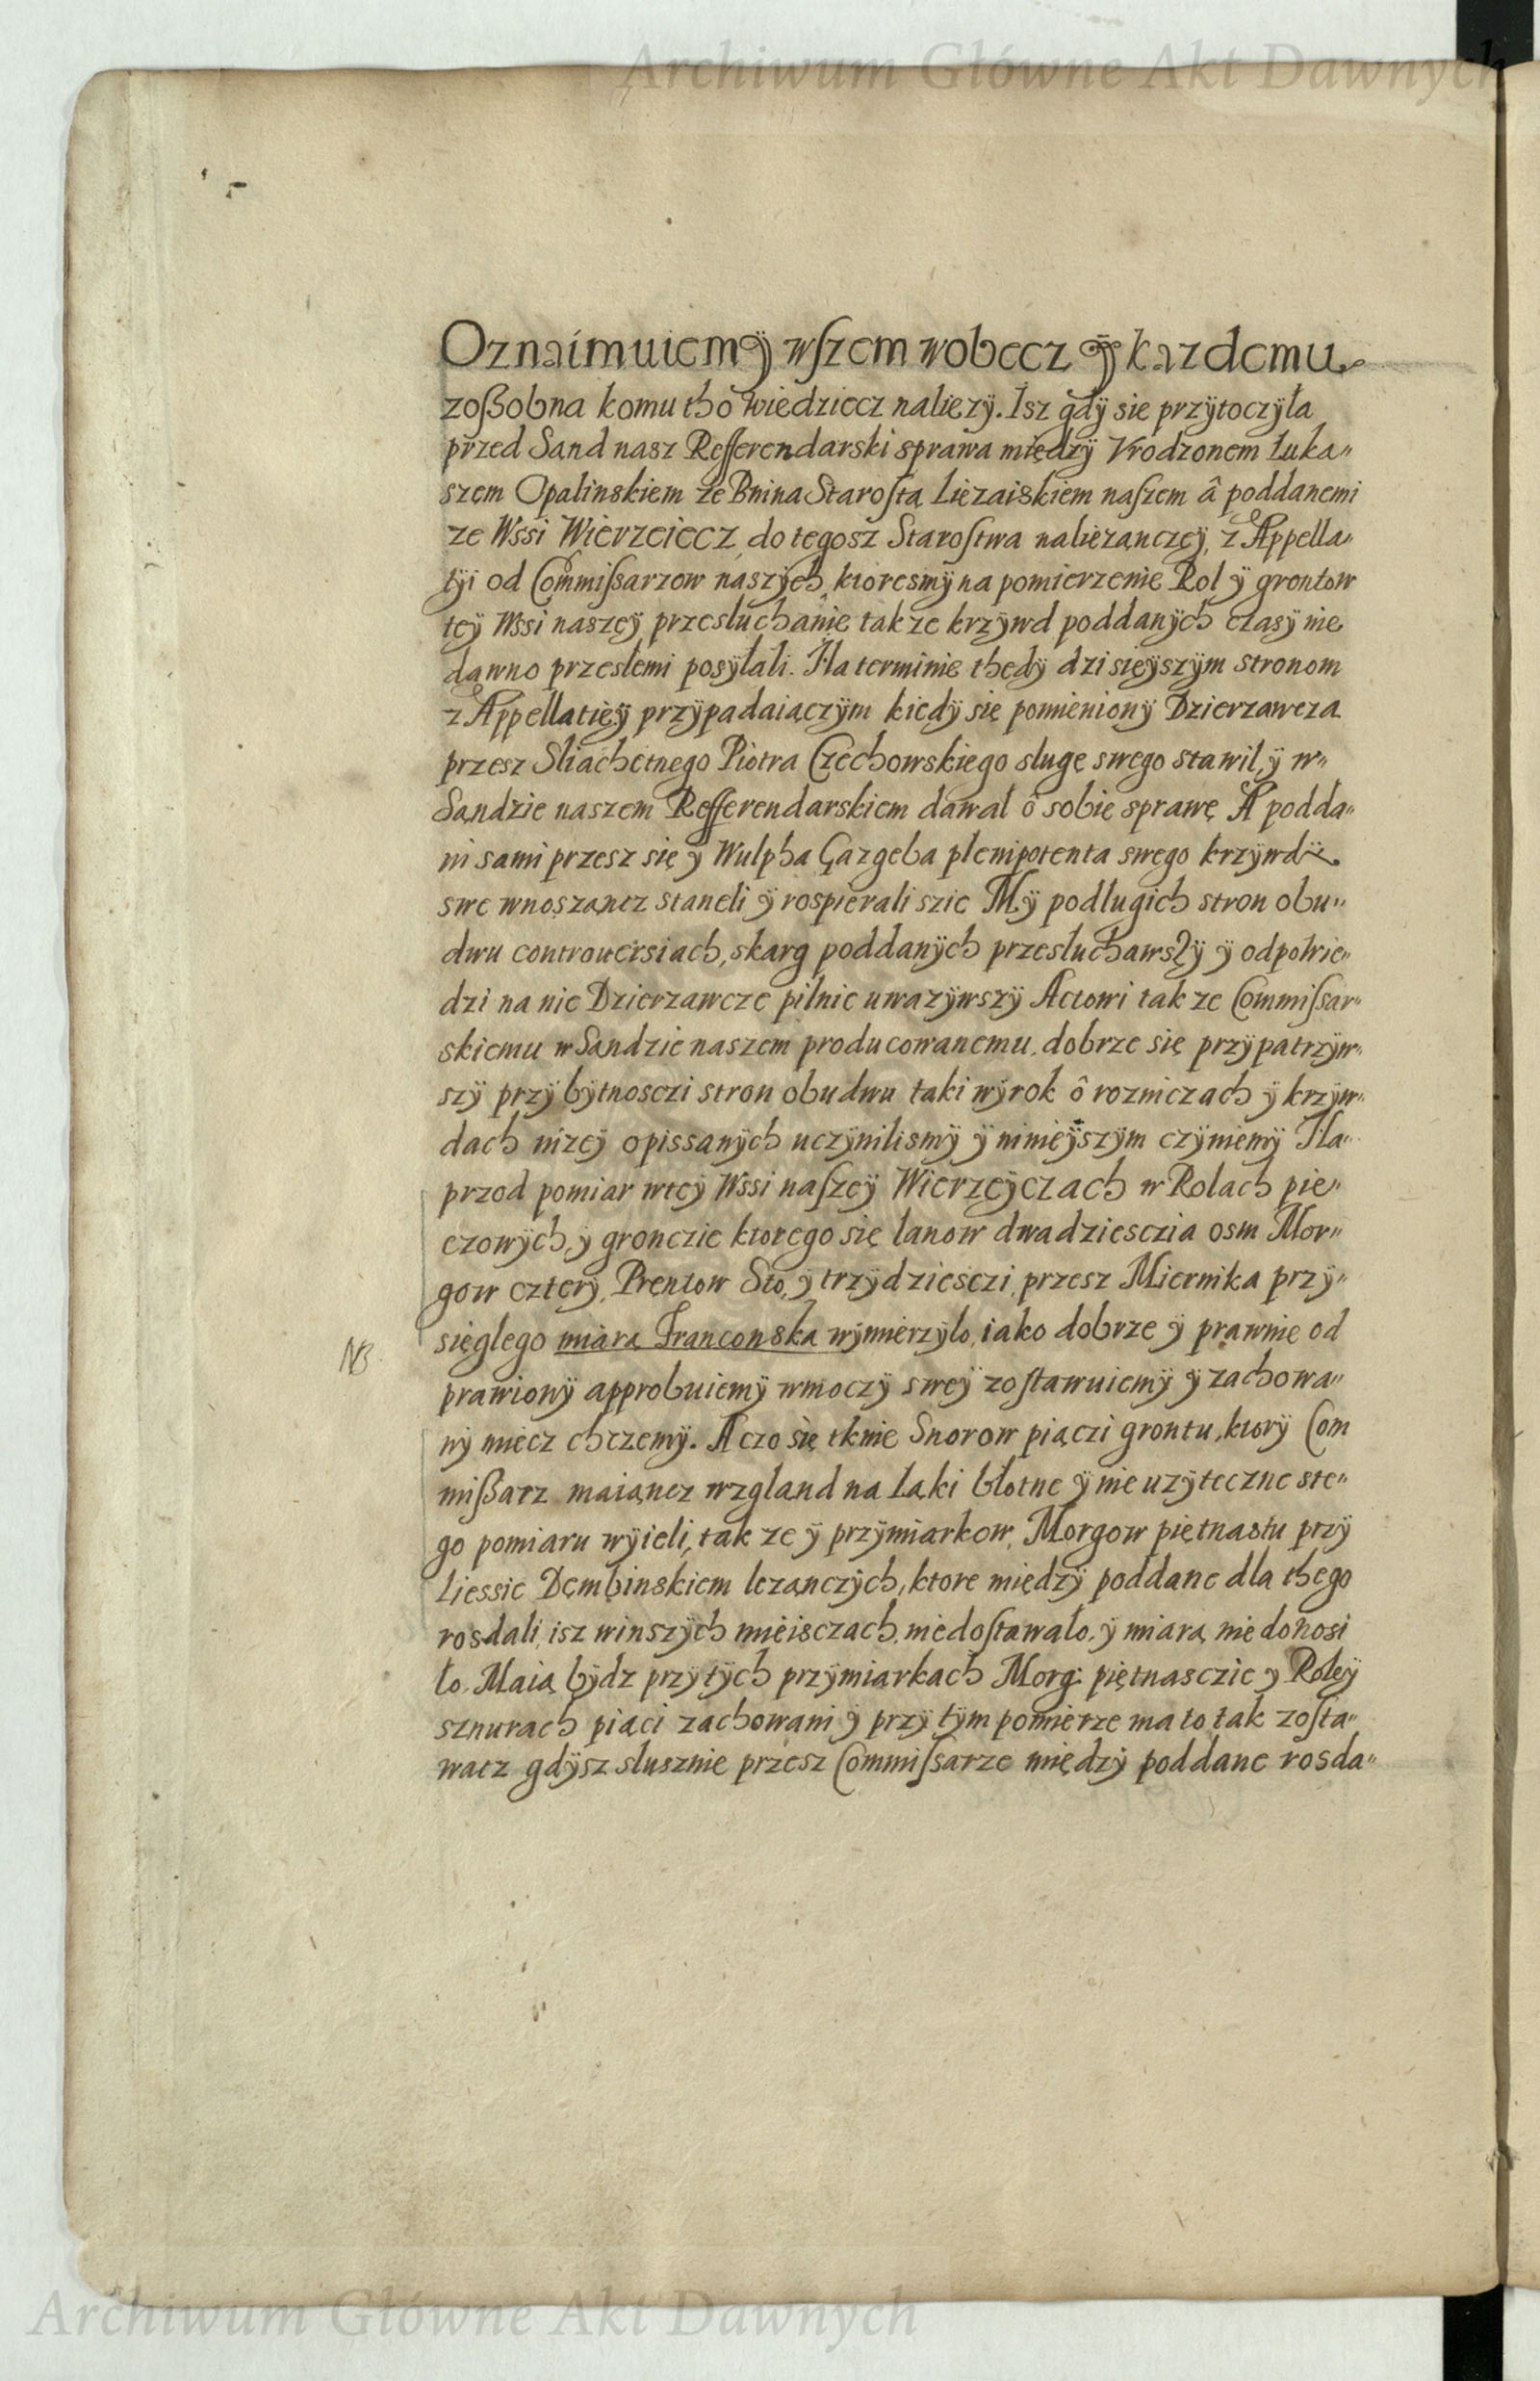 Archiwum Główne Akt Dawnych
Oznaimuiemÿ wszem wobecz ÿ kazdemu
zoßobna komu tho wiedziecz nalieży. Isz gdÿ sie przÿtoczÿła
przed Sand nasz Refferendarski sprawa międzÿ Vrodzonem Łuka„
szem Opalinskiem ze Bnina Starostą Liezaiskiem naszem â poddanemi
ze Wssi Wierzeiecz, do tegosz Starostwa nalieżanczeÿ, z Appella„
tÿi od Commissarzow naszÿch, ktoresmÿ na pomierzenie Rol ÿ grontow
teÿ Wssi naszeÿ przesłuchânie takze krzÿwd poddanÿch czasÿ nie
dawno przeslemi posÿłali. Na terminie thedÿ dzisięÿszÿm stronom
z Appellatieÿ przÿpadaiączÿm kiedÿ się pomienionÿ Dzierzawcza
przesz Sliachetnego Piotra Czechowskiego slugę swego stawil, ÿ w„
Sandzie naszem Refferendarskiem dawał ô sobie sprawę A podda„
ni sami przesz się ÿ Wulpha Gazgeba plenipotenta swego krzÿwdÿ
swe wnoszancz staneli ÿ rospierali szie Mÿ podlugich stron obu„
dwu controuersiach, skarg poddanÿch przesłuchawszÿ ÿ odpowie„
dzi na nie Dzierzawcze pilnie uwazÿwszÿ Actowi takze Commissar„
skiemu w Sandzie naszem producowanemu, dobrze się przÿpatrzÿw„
szÿ przÿ bÿtnosczi stron obudwu taki wÿrok ô rozniczach ÿ krzÿw„
dach niżeÿ opissanÿch uczÿnilismÿ ÿ ninieÿszÿm czÿniemÿ Na„
przod pomiar w teÿ Wssi naszeÿ Wierzeÿczach w Rolach pie„
czowÿch, ÿ gronczie ktorego się lanow dwadziesczia osm Mor„
gow czterÿ, Prentow Sto, ÿ trzÿdziesczi, przesz Miernika przÿ„
sięglego miarą Franconską wÿmierzÿlo, iako dobrze ÿ prawnie od
NB
prawionÿ approbuiemÿ w moczÿ sweÿ zostawuiemÿ ÿ zachowa„
nÿ miecz chczemÿ. A czo się tknie Snorow piączi grontu, ktorÿ Com
mißarz maiąncz wzgland na Łąki błotne ÿ nie uzÿteczne ste„
go pomiaru wÿieli, tak ze ÿ przÿmiarkow, Morgow piętnastu przÿ
Liessie Dembinskiem lezanczÿch, ktore międzÿ poddane dla thego
rosdali, isz winszÿch mieisczach, niedostawało, ÿ miarą nie donosi
ło. Maią bÿdz przÿ tÿch przÿmiarkach Morg: piętnasczie ÿ Roleÿ
sznurach piąci zachowani ÿ przÿ tÿm pomierze ma to tak zosta„
wacz gdÿsz slusznie przesz Commissarze międzÿ poddane rosda„
Archiwum Główne Akt Dawnych